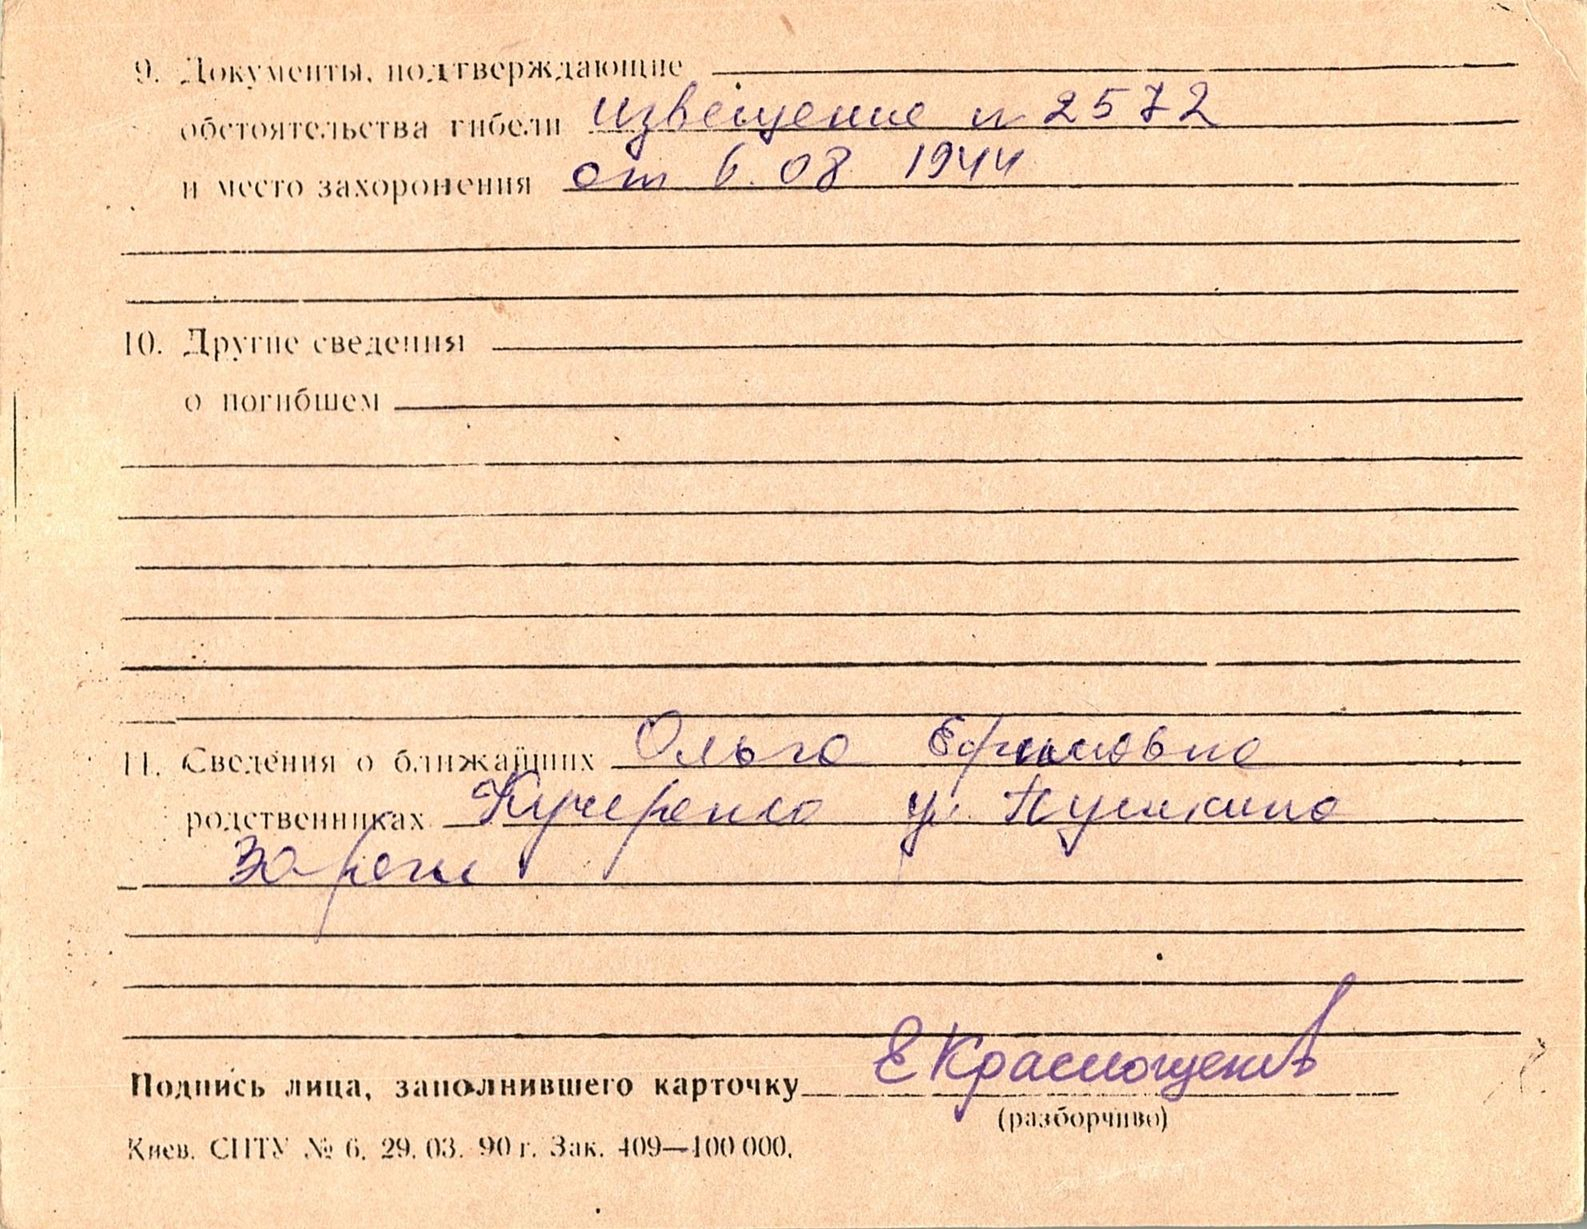 9. Документы, подтверждающие
обстоятельства гибели извещение n 2572
и место захоронения от 6. 08 1944
10. Другие сведения
о погибшем
11. Сведения о ближайших Ольга Ефимовна
родственниках Кучеренко ул. Пушкина
Подпись лица, заполнившего карточку Е Краснощеков
(разборчиво)
Киев. СПТУ № 6. 29. 03. 90 г. Зак. 409—100 000.